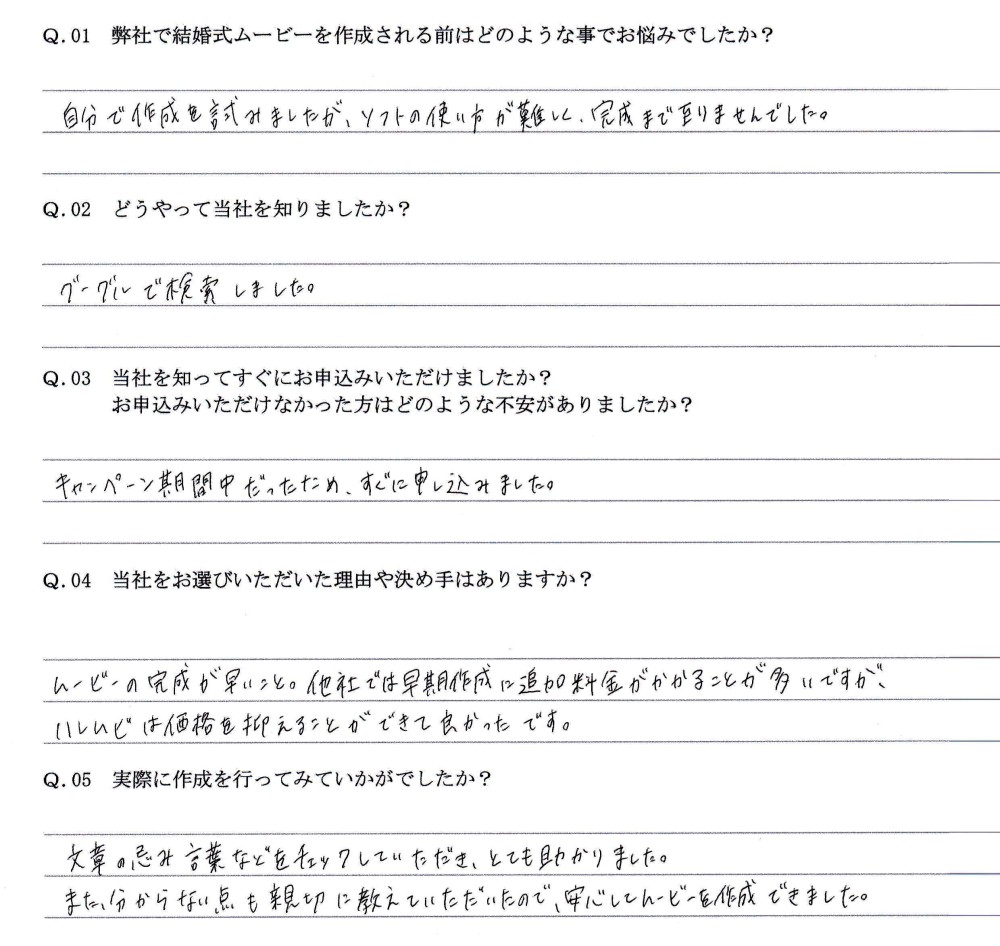 Q.01 弊社で結婚式ムービーを作成される前はどのような事でお悩みでしたか？
自分で作成を試みましたが、ソフトの使い方が難しく、完成まで至りませんでした。
Q.02 どうやって当社を知りましたか？
グーグルで検索しました。
Q.03 当社を知ってすぐにお申込みいただけましたか？
お申込みいただけなかった方はどのような不安がありましたか？
キャンペーン期間中だったため、すぐに申し込みました。
Q.04 当社をお選びいただいた理由や決め手はありますか？
ムービーの完成が早いこと。他社では早期作成に追加料金がかかることが多いですが、
ハレムビは価格を抑えることができて良かったです。
Q.05 実際に作成を行ってみていかがでしたか？
文章の忌み言葉などをチェックしていただき、とても助かりました。
また、分からない点も親切に教えていただいたので、安心してムービーを作成できました。